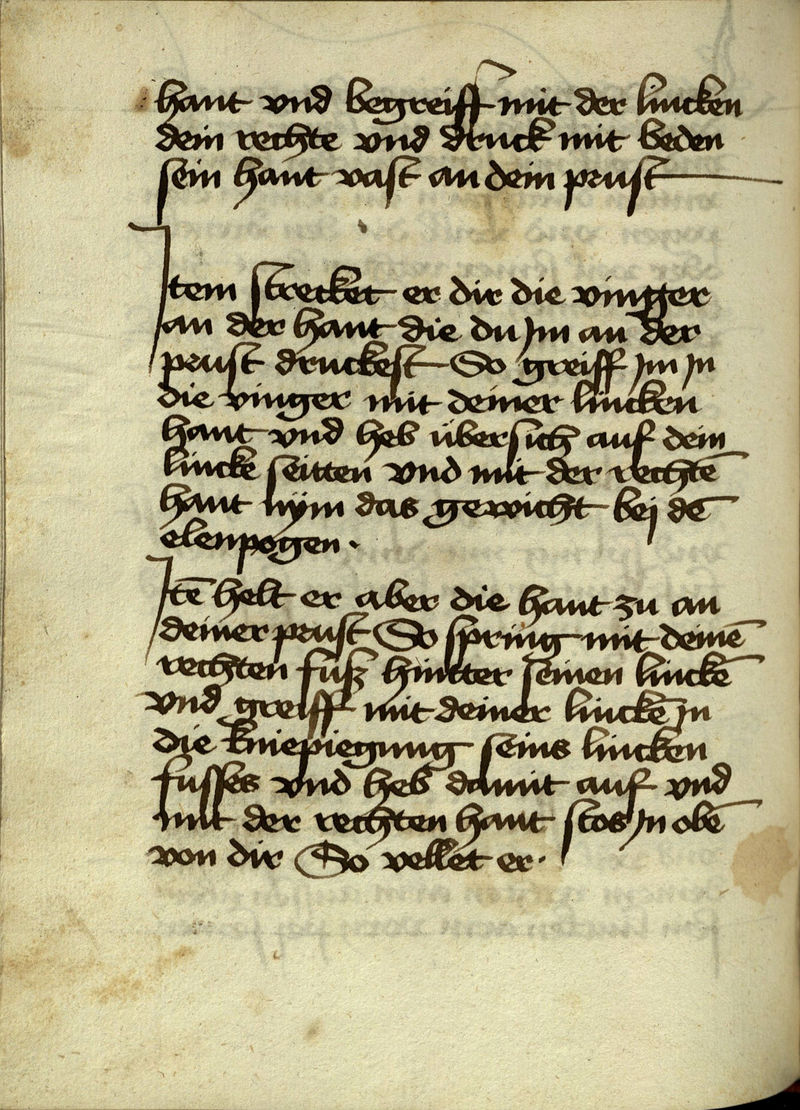 hant vnd begreiff mit der lincken
dein rechte vnd druck mit beden
sein hant vast an dein prust
Item strecket er dir die vinger
an der hant die du Jm an der
prust druckest So greiff Jm Jn
die vinger mit deiner lincken
hant vnd heb übersich auf dein
lincke seitten vnd mit der rechtē
hant nÿm das gewicht bej dē
elenpogen ·
Itē helt er aber die hant zu an
deiner prust So spring mit deinē
rechten fuß hintter seinen linckē
vnd greiff mit deiner linckē Jn
die kniepiegung seins lincken
fusses vnd heb damit auf vnd
mit der rechten hant stos Jn obē
von dir So vellet er ·